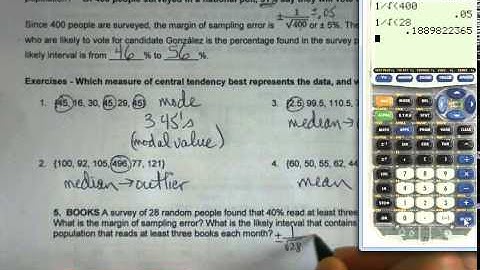 population?
±1/√400 = .05
Since 400 people are surveyed, the margin of sampling error is ±1/√400 or ± 5%. The
who are likely to vote for candidate González is the percentage found in the survey p
likely interval is from 46 % to 56 %.
Exercises - Which measure of central tendency best represents the data, and w
1. {45, 16, 30, 45, 29, 45} mode
3 45's
(modal value)
3. {2.5, 99.5, 110.5,
median→
2. {100, 92, 105, 496, 77, 121}
median → outlier
4. {60, 50, 55, 62, 44
mean
5. BOOKS A survey of 28 random people found that 40% read at least three
What is the margin of sampling error? What is the likely interval that contains
population that reads at least three books each month? ±1/√28
1/√(400
.05
1/√(28
.1889822365